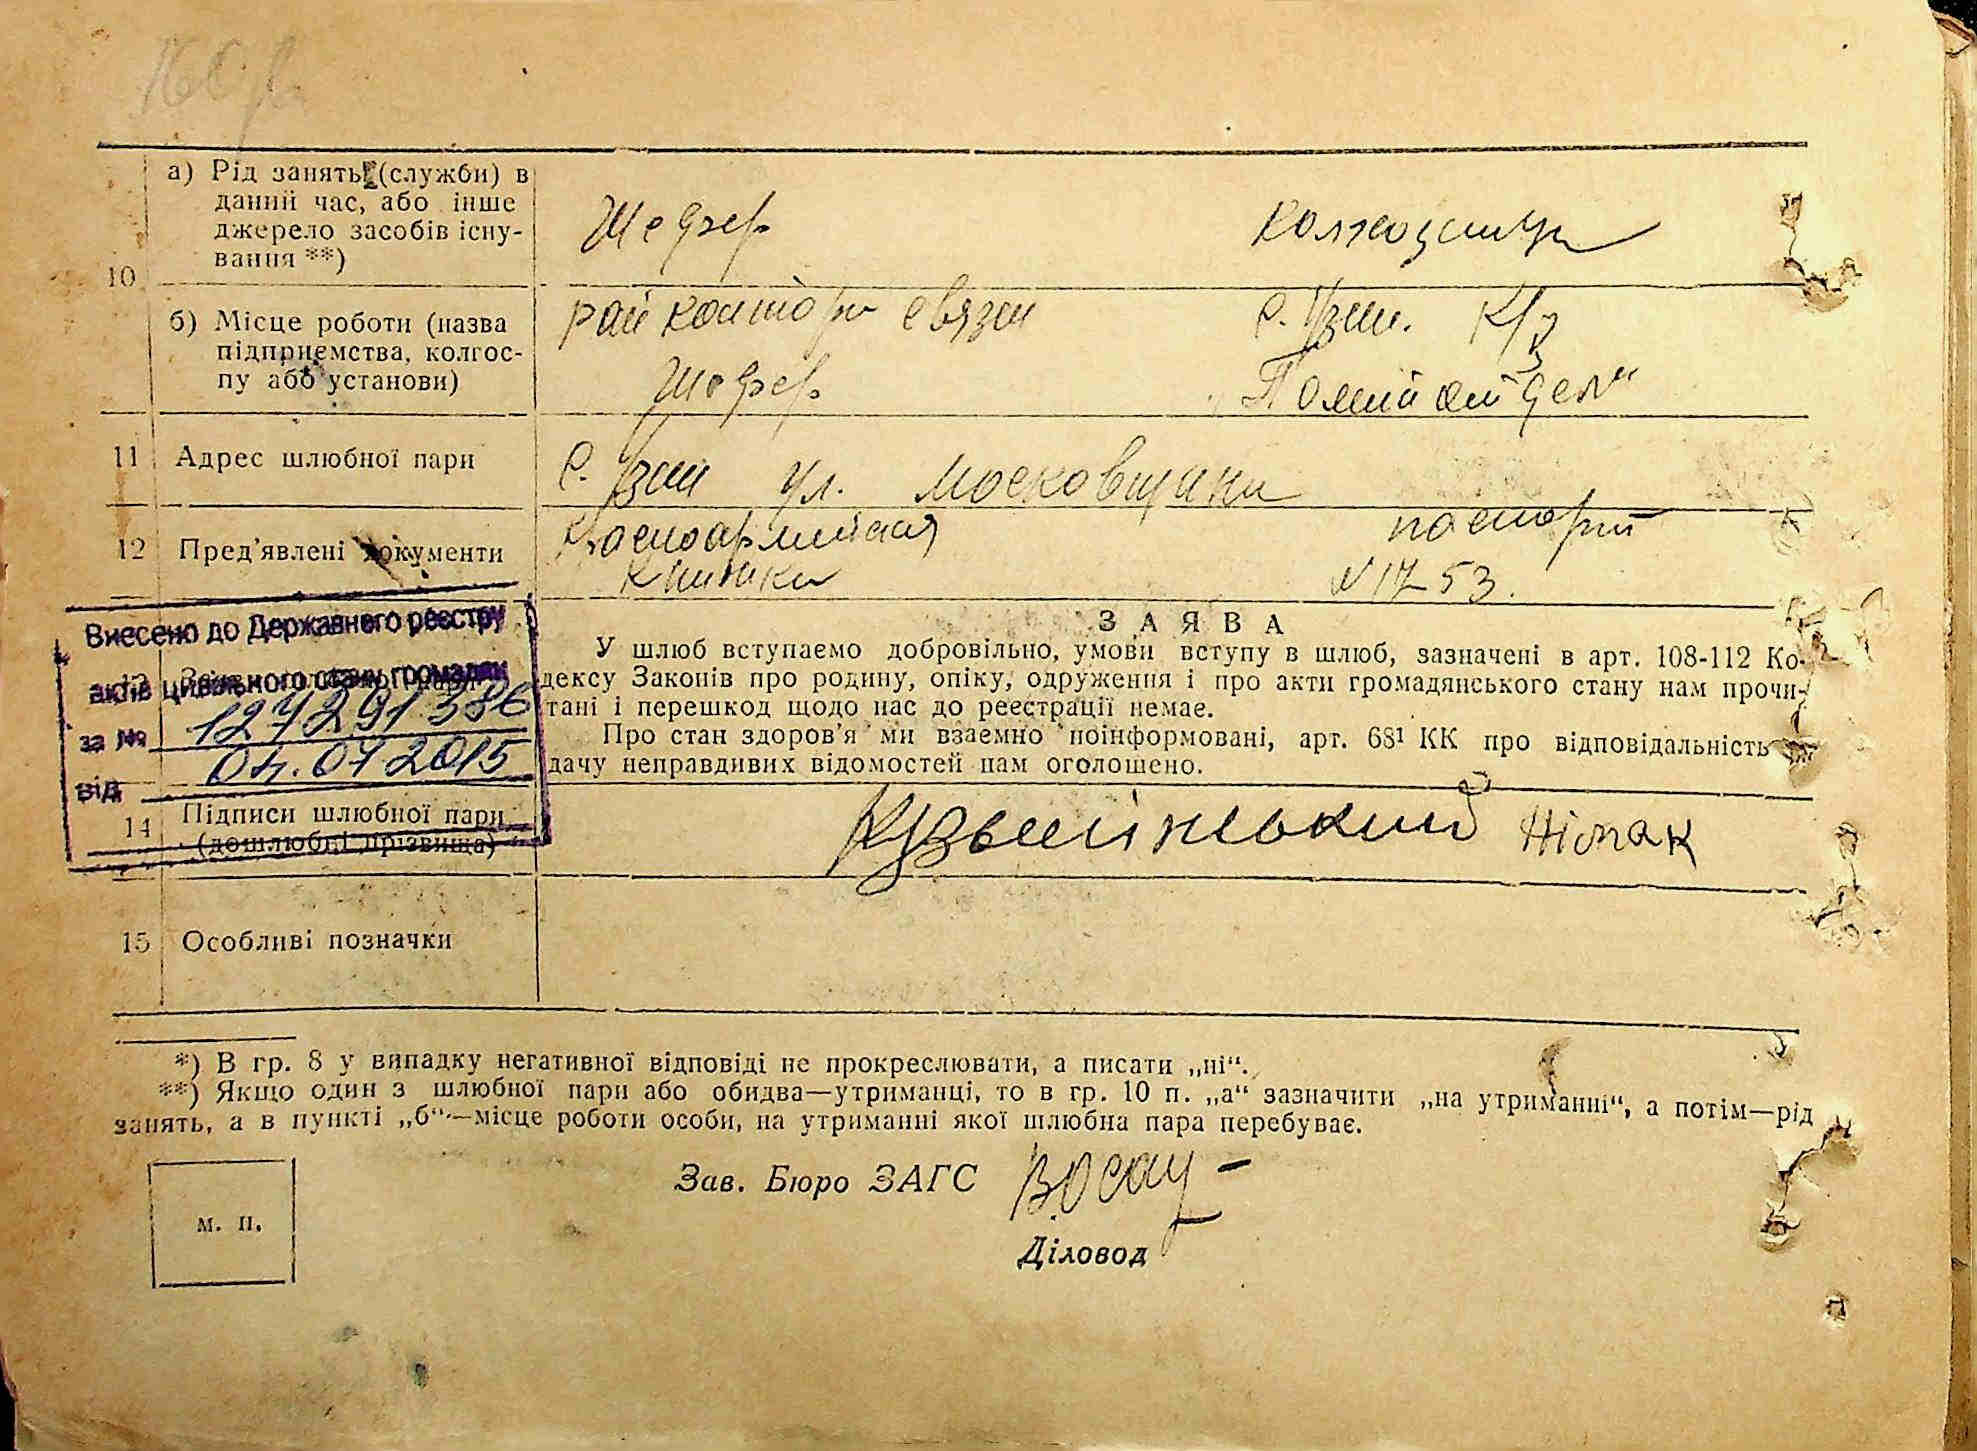 а) Рід занять (служби) в
даний час, або інше
джерело засобів існу-
вання **)
10
Шофер
колхозница
б) Місце роботи (назва
підприємства, колгос-
пу або установи)
райконтора связи
с. Узин. К/з
Шофер
"Политотдел"
11 Адрес шлюбної пари
с. Узин ул. Московщина
12 Пред'явлені документи
Красноармейская
книжка
паспорт
№ 1753.
Внесено до Державного реєстру
актів цивільного стану громадян
за № 127291386
від 04.07 2015
З А Я В А
У шлюб вступаємо добровільно, умови вступу в шлюб, зазначені в арт. 108-112 Ко-
дексу Законів про родину, опіку, одруження і про акти громадянського стану нам прочи-
тані і перешкод щодо нас до реєстрації немає.
Про стан здоров'я ми взаємно поінформовані, арт. 68¹ КК про відповідальність
дачу неправдивих відомостей нам оголошено.
14 Підписи шлюбної пари
(дошлюбні прізвища)
Кузьмінський
15 Особливі позначки
*) В гр. 8 у випадку негативної відповіді не прокреслювати, а писати „ні“.
**) Якщо один з шлюбної пари або обидва—утриманці, то в гр. 10 п. „а“ зазначити „на утриманні“, а потім—рід
занять, а в пункті „б“—місце роботи особи, на утриманні якої шлюбна пара перебуває.
Зав. Бюро ЗАГС
м. п.
Діловод